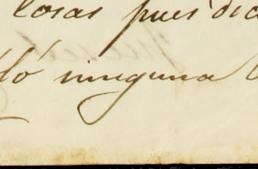 losas pues dia
lló ninguna